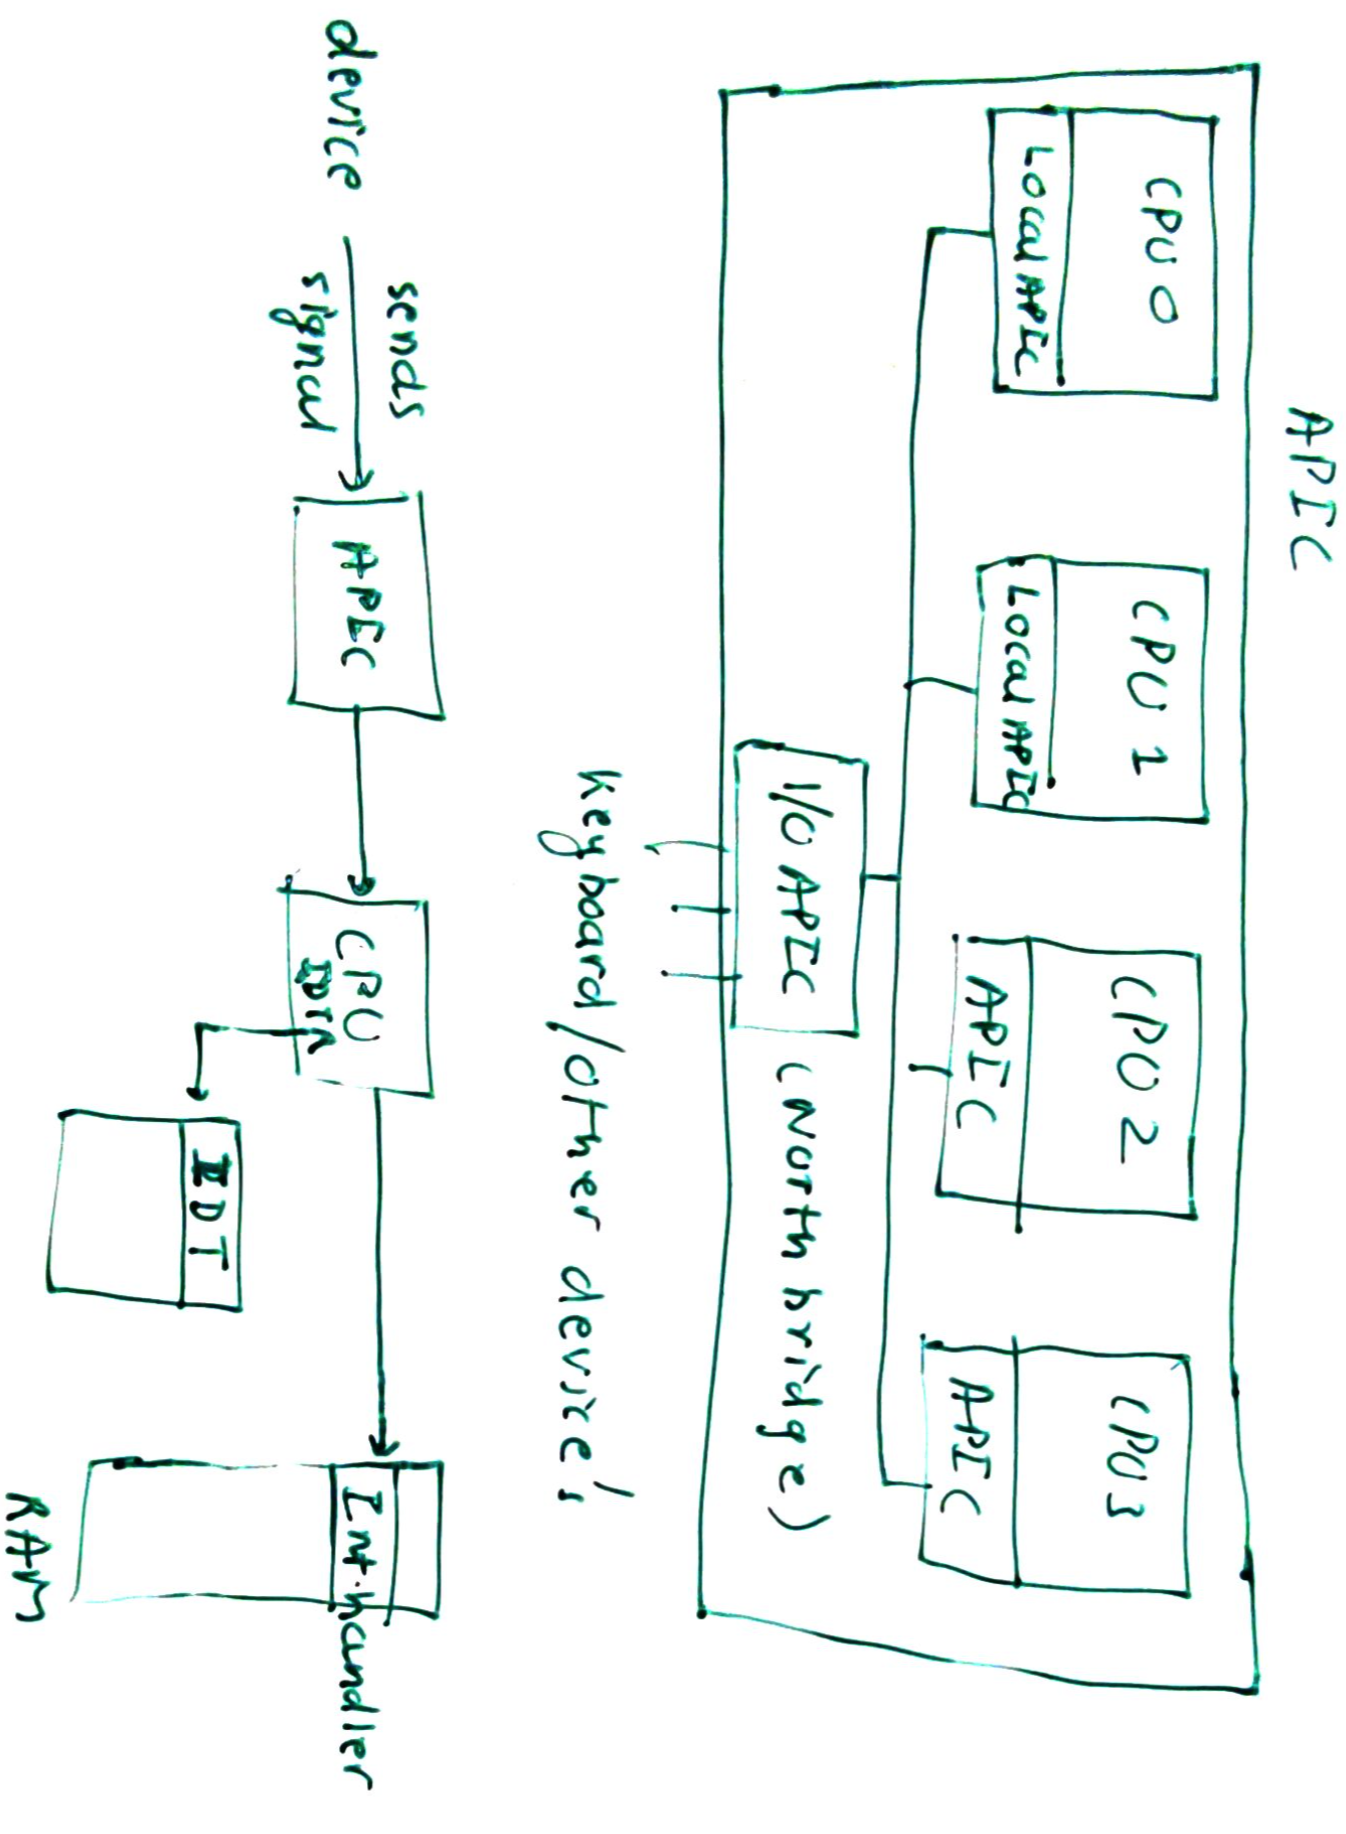 APIC
CPU 0
Local APIC
CPU 1
Local APIC
CPU 2
APIC
CPU 3
APIC
I/O APIC
(North bridge)
Keyboard/other device's
device
sends
signal
APIC
CPU
IDTR
IDT
Int.handler
RAM